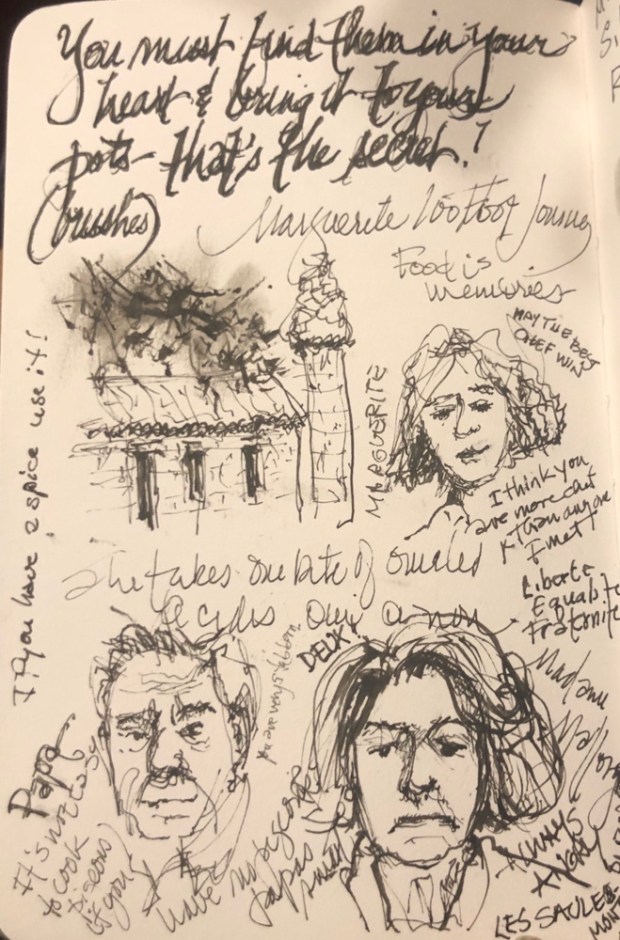 You must find them in your
heart & bring it to your
pots - that's the secret!
(brushes)
Marguerite 100 Foot Journey
Food is
memories
MAY THE BEST
CHEF WIN
MARGUERITE
I think you
are more
than anyone
I met!
If you have a spice use it!
She takes one bite of
& oui
Liberte
Equalite
Fraternite
you are very stubborn
DEUX!
Madame
Papa
It's not
to cook
pigeons
if you
have no pigeons
Papa's
ALWAYS
LES SAULE